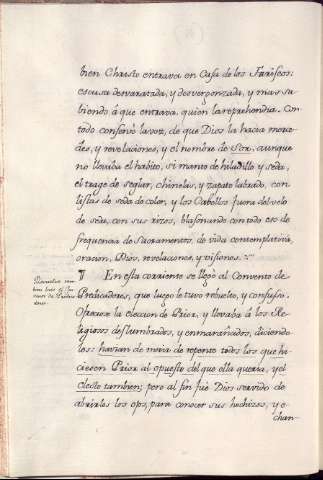 bien Christo entrava en Casa de los Fariseos:
escusa desvaratada, y desvergonzada, y mas sa-
biendo à que entrava, quien la reprehendia. Con
todo conservò la voz, de que Dios la hacia merce-
des, y revelaciones, y el nombre de Sor, aunque
no llevaba el habito, si manto de hiladillo y seda,
el trage de seglar, chinelas, y zapato labrado, con
listas de seda de color, y los Cabellos fuera del velo
de seda, con sus rizos, blasonando con todo eso de
frequencia de Sacramentos, de vida contemplativa,
oracion, Dios, revelaciones, y visiones.
¶ En esta corriente se llegò al Convento de
Predicadores, que luego le tuvo rebuelto, y confuso.
Ofreciose la eleccion de Prior, y llevaba à los Re-
ligiosos deslumbrados, y enmarañados, diciendo
les: havian de morir de repente todos los que hi-
ciesen Prior al opuesto del que ella queria, y el
Electo tambien; pero al fin fuè Dios servido de
abrirles los ojos, para conocer sus hechizos, y e-
chan-